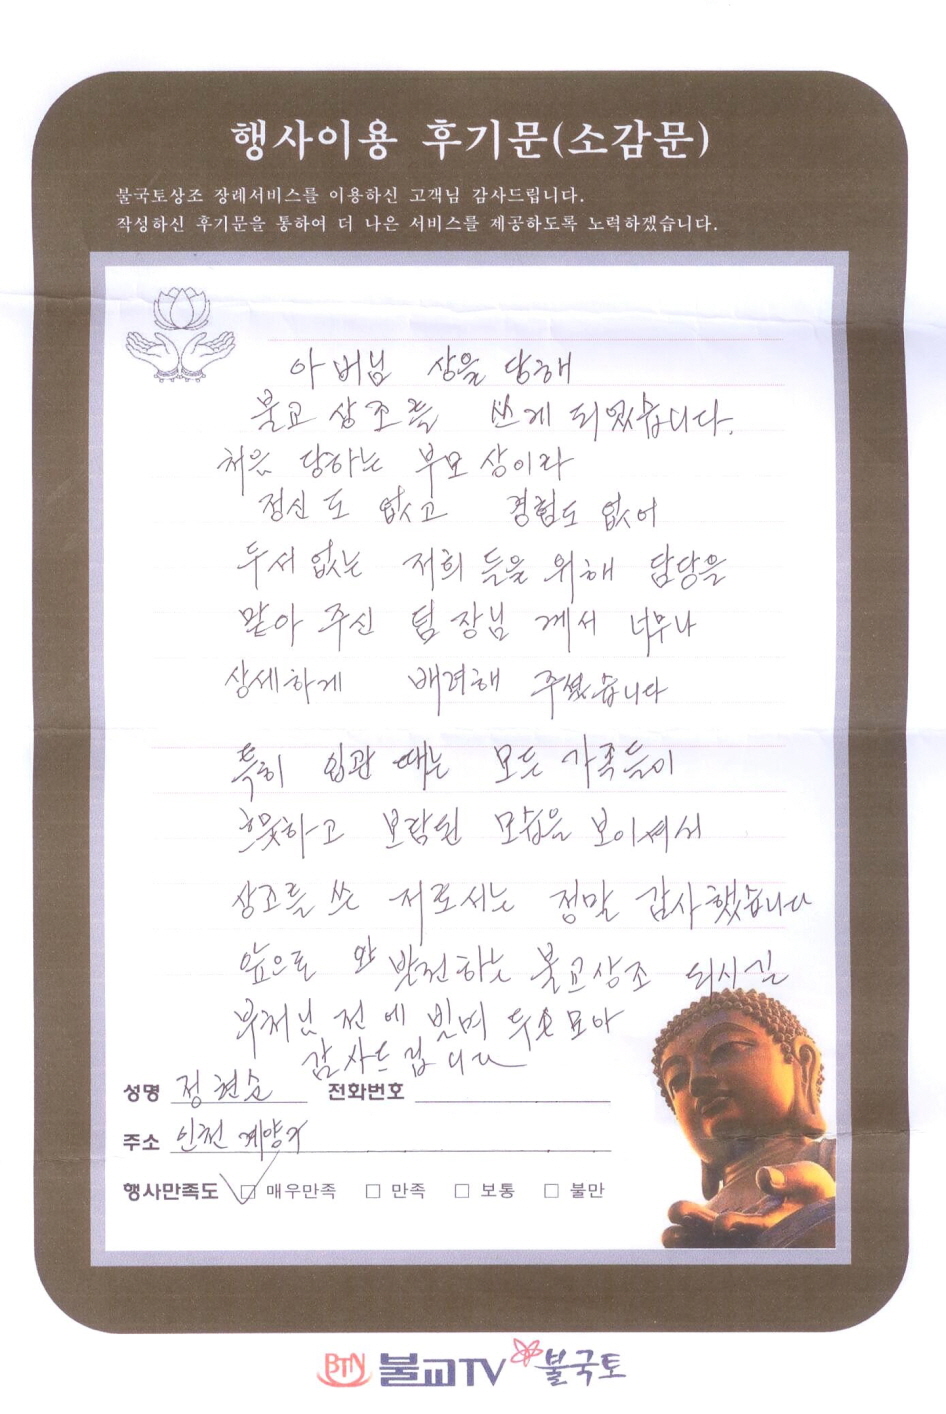 행사이용 후기문(소감문)
불국토상조 장례서비스를 이용하신 고객님 감사드립니다.
작성하신 후기문을 통하여 더 나은 서비스를 제공하도록 노력하겠습니다.
아버님 상을 당해
불교 상조를 쓰게 되었습니다.
처음 당하는 부모 상이라
정신도 없고 경험도 없어
두서 없는 저희 들을 위해 담당을
맡아 주신 팀장님 께서 너무나
상세하게 배려해 주셨습니다
특히 입관 때는 모든 가족들이
흐뭇하고 보람된 모습을 보이셔서
상조를 쓴 저로서는 정말 감사했습니다
앞으로 발전하는 불교상조 되시길
부처님 전에 빌며 두손 모아
감사드립니다
성명 정현순 전화번호
주소 인천 계양구
행사만족도 매우만족 만족 보통 불만
BTN 불교TV 불국토